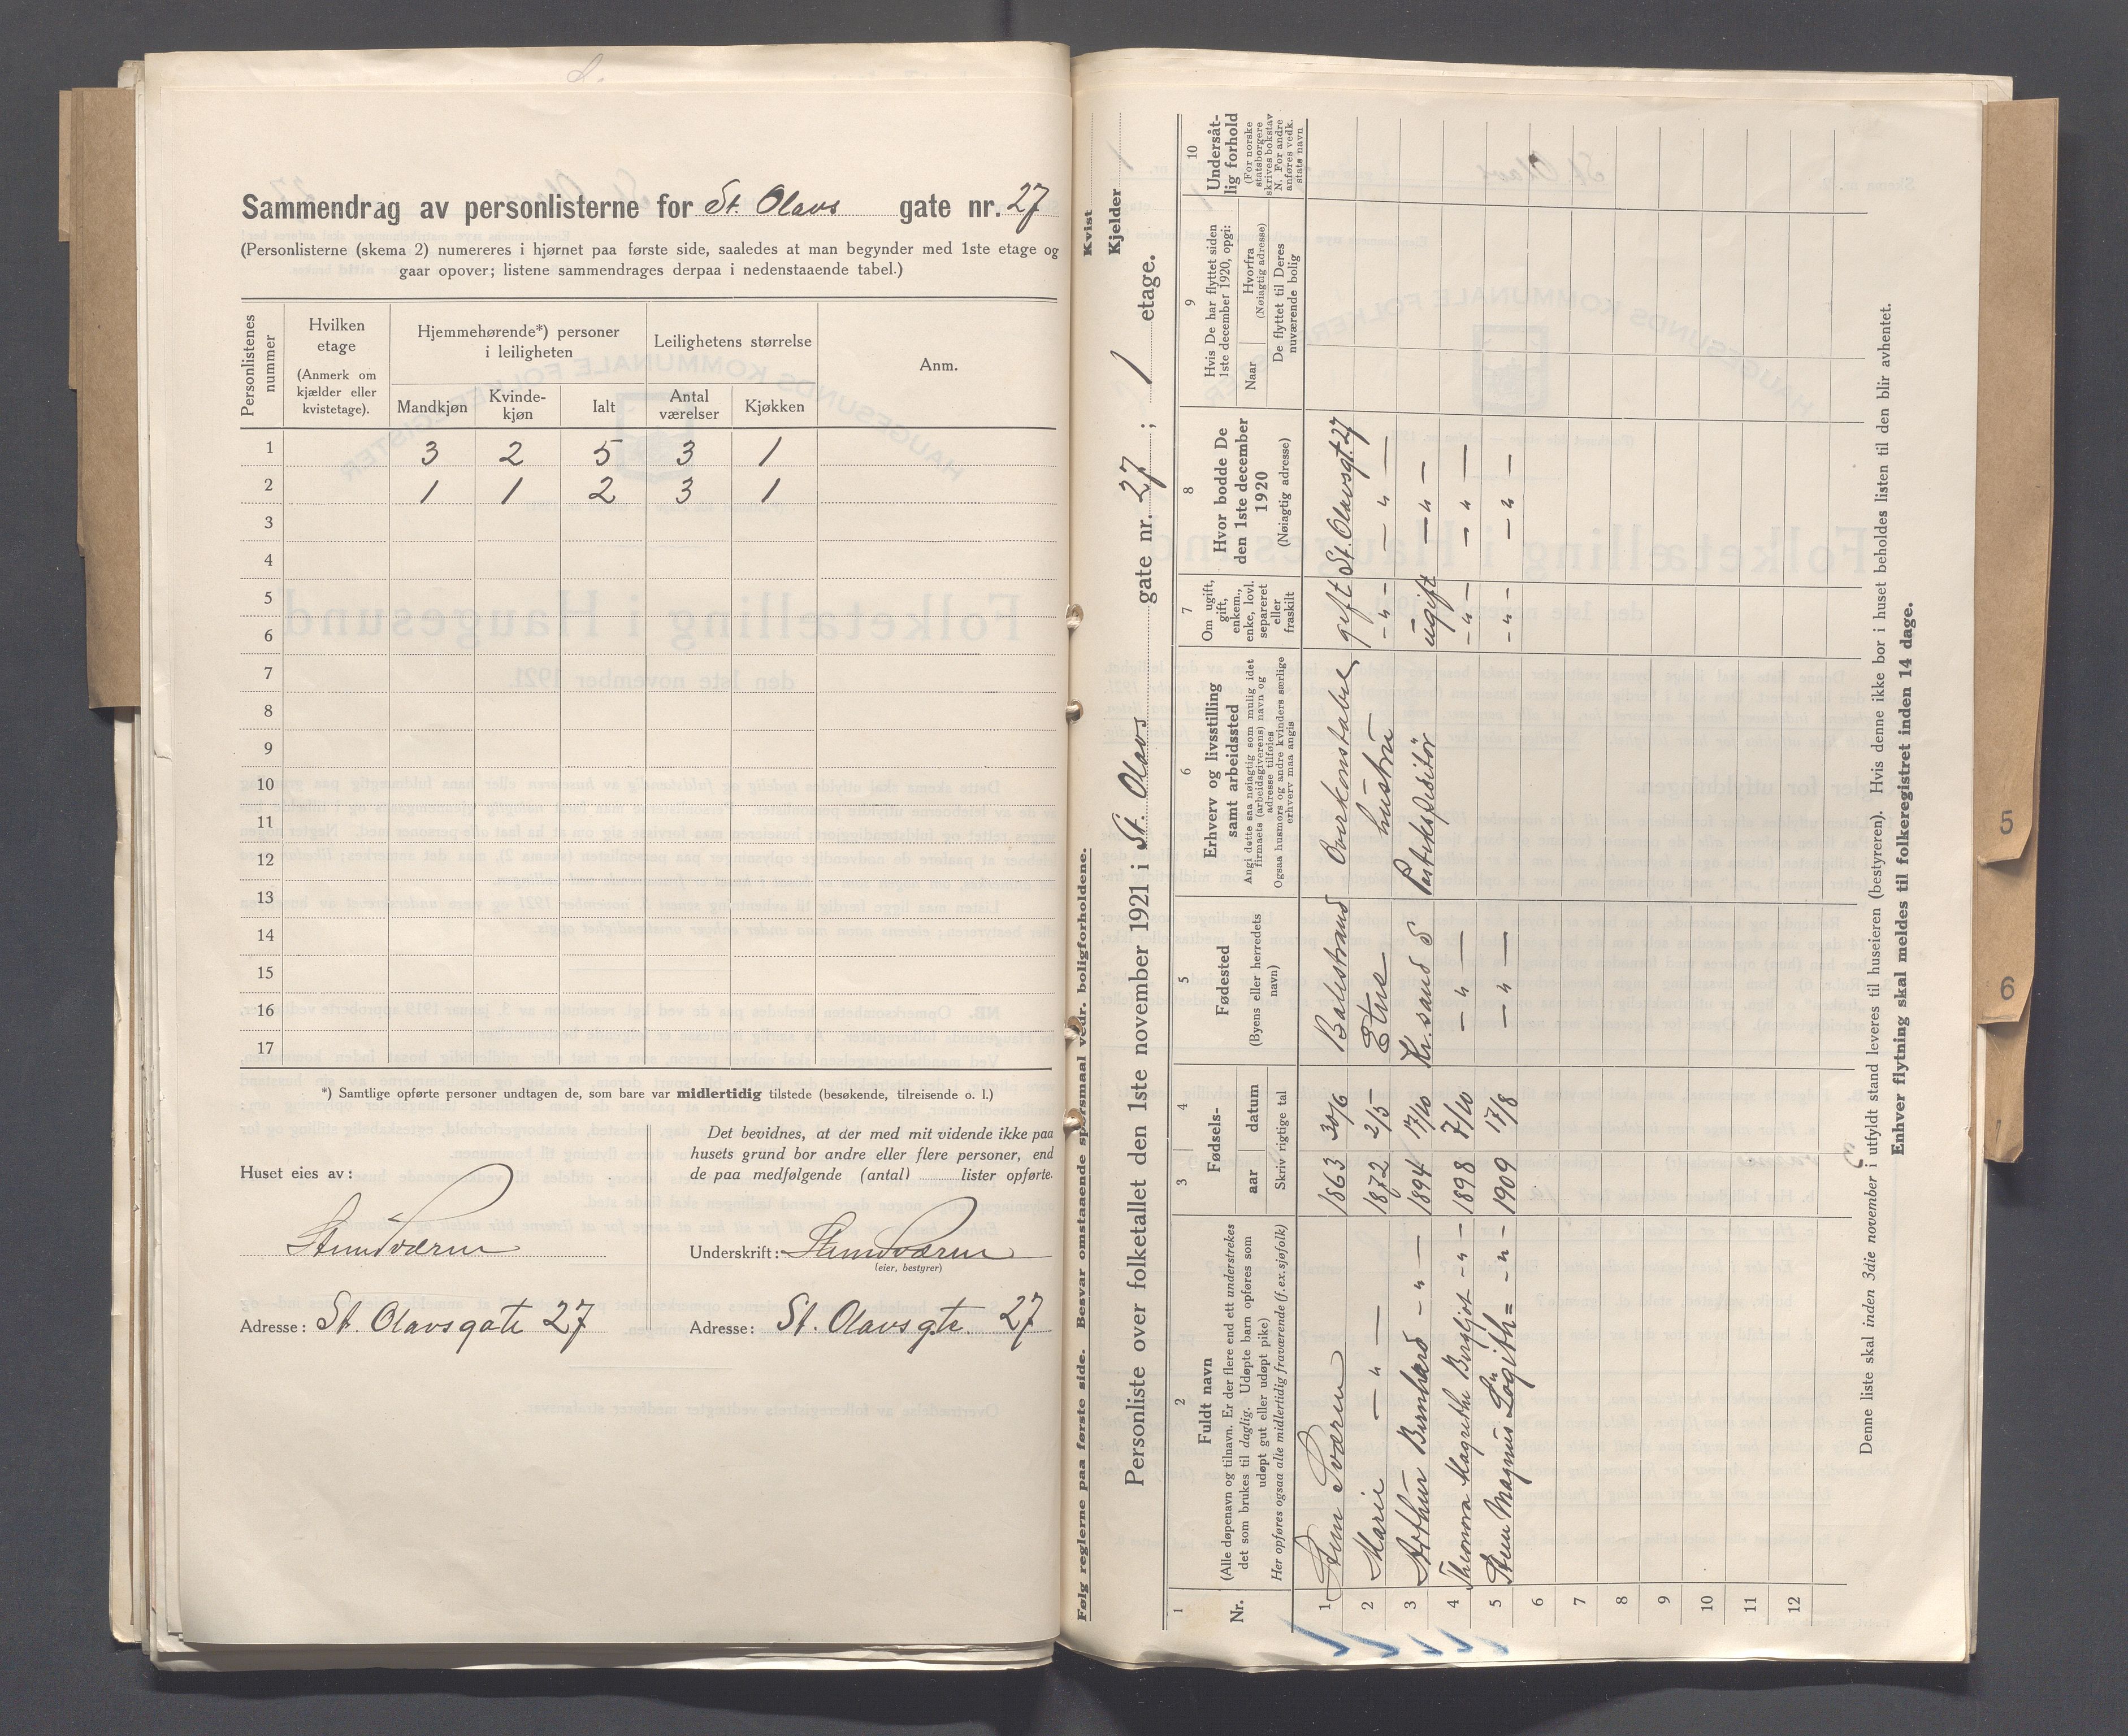 Sammendrag av personlisterne for St. Olavs gate nr. 27
(Personlisterne (skema 2) numereres i hjørnet paa første side, saaledes at man begynder med 1ste etage og
gaar opover; listene sammendrages derpaa i nedenstaaende tabel.)
Personlistenes nummer
Hvilken etage (Anmerk om kjælder eller kvistetage).
Hjemmehørende*) personer i leiligheten
Leilighetens størrelse
Anm.
Mandkjøn Kvinde-kjøn Ialt Antal værelser Kjøkken
1 3 2 5 3 1
2 1 1 2 3 1
3
4
5
6
7
8
9
10
11
12
13
14
15
16
17
*) Samtlige opførte personer undtagen de, som bare var midlertidig tilstede (besøkende, tilreisende o. l.)
Huset eies av:
Sten Sværen
Adresse: St. Olavsgate 27
Det bevidnes, at der med mit vidende ikke paa
husets grund bor andre eller flere personer, end
de paa medfølgende (antal) lister opførte.
Underskrift: Sten Sværen
(eier, bestyrer)
Adresse: St. Olavs gte. 27
Følg reglerne paa første side. Besvar omstaaende spørsmaal vedr. boligforholdene.
Kvist
Kjelder
Personliste over folketallet den 1ste november 1921 i St. Olavs gate nr. 27 ; 1 etage.
1 2 3 4 5 6 7 8 9 10
Nr.
Fuldt navn
(Alle døpenavn og tilnavn. Er der flere end ett understrekes
det som brukes til daglig. Udøpte barn opføres som
udøpt gut eller udøpt pike)
Her opføres ogsaa alle midlertidig fraværende (f. ex. sjøfolk)
Fødsels-
aar datum
Skriv rigtige tal
Fødested
(Byens eller herredets navn)
Erhverv og livsstilling
samt arbeidssted
Angi dette saa nøiagtig som mulig idet
firmaets (arbeidsgiverens) navn og
adresse tilføies
Ogsaa husmors og andre kvinders særlige
erhverv maa angis
Om ugift,
gift,
enkem.,
enke, lovl.
separeret
eller
fraskilt
Hvor bodde De
den 1ste december
1920
(Nøiagtig adresse)
Hvis De har flyttet siden
1ste december 1920, opgi:
Naar
Hvorfra
(Nøiagtig adresse)
De flyttet til Deres
nuværende bolig
Undersåt-
lig forhold
(For norske
statsborgere
skrives bokstav
N. For andre
anføres vedk.
stats navn
1 Sten Sværen 1863 30/6 Balestrand Overkonstabel gift St. Olavsgt. 27
2 Marie — " — 1872 2/5 Etne hustru - " - — " —
3 Arthur Bernhard — " — 1894 17/10 Kr.sand S Postekspeditør ugift — " —
4 Theonora Magrethe Bergljot - " - 1898 7/10 — " — - " - — " —
5 Sten Magnus - " - 1909 17/8 — " — - " - — " —
6
7
8
9
10
11
12
Denne liste skal inden 3die november i utfyldt stand leveres til huseieren (bestyreren). Hvis denne ikke bor i huset beholdes listen til den blir avhentet.
Enhver flytning skal meldes til folkeregistret inden 14 dage.
5
6